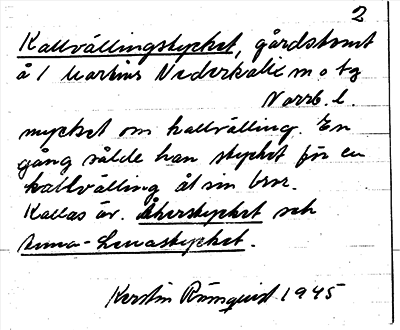 2
Kallvällingstycket, gårdstomt
å 1 Martins Nederkalix m o tg
Norrb. l.
mycket om kallvälling. En
gång sålde han stycket för en
kallvälling åt sin bror.
Kallas äv. Åkerstycket och
Anna-Lenastycket.
Kerstin Römquist 1945